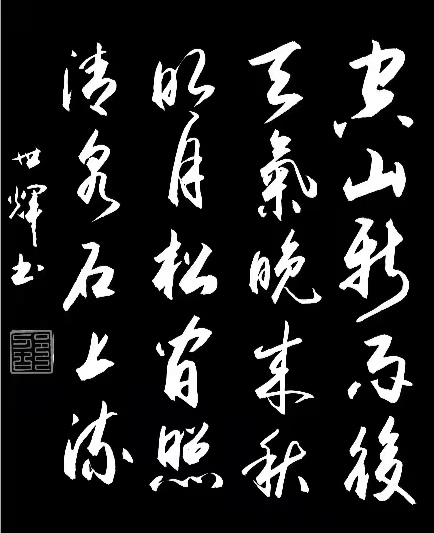 空山新雨後
天氣晚来秋
明月松間照
清泉石上流
世輝書